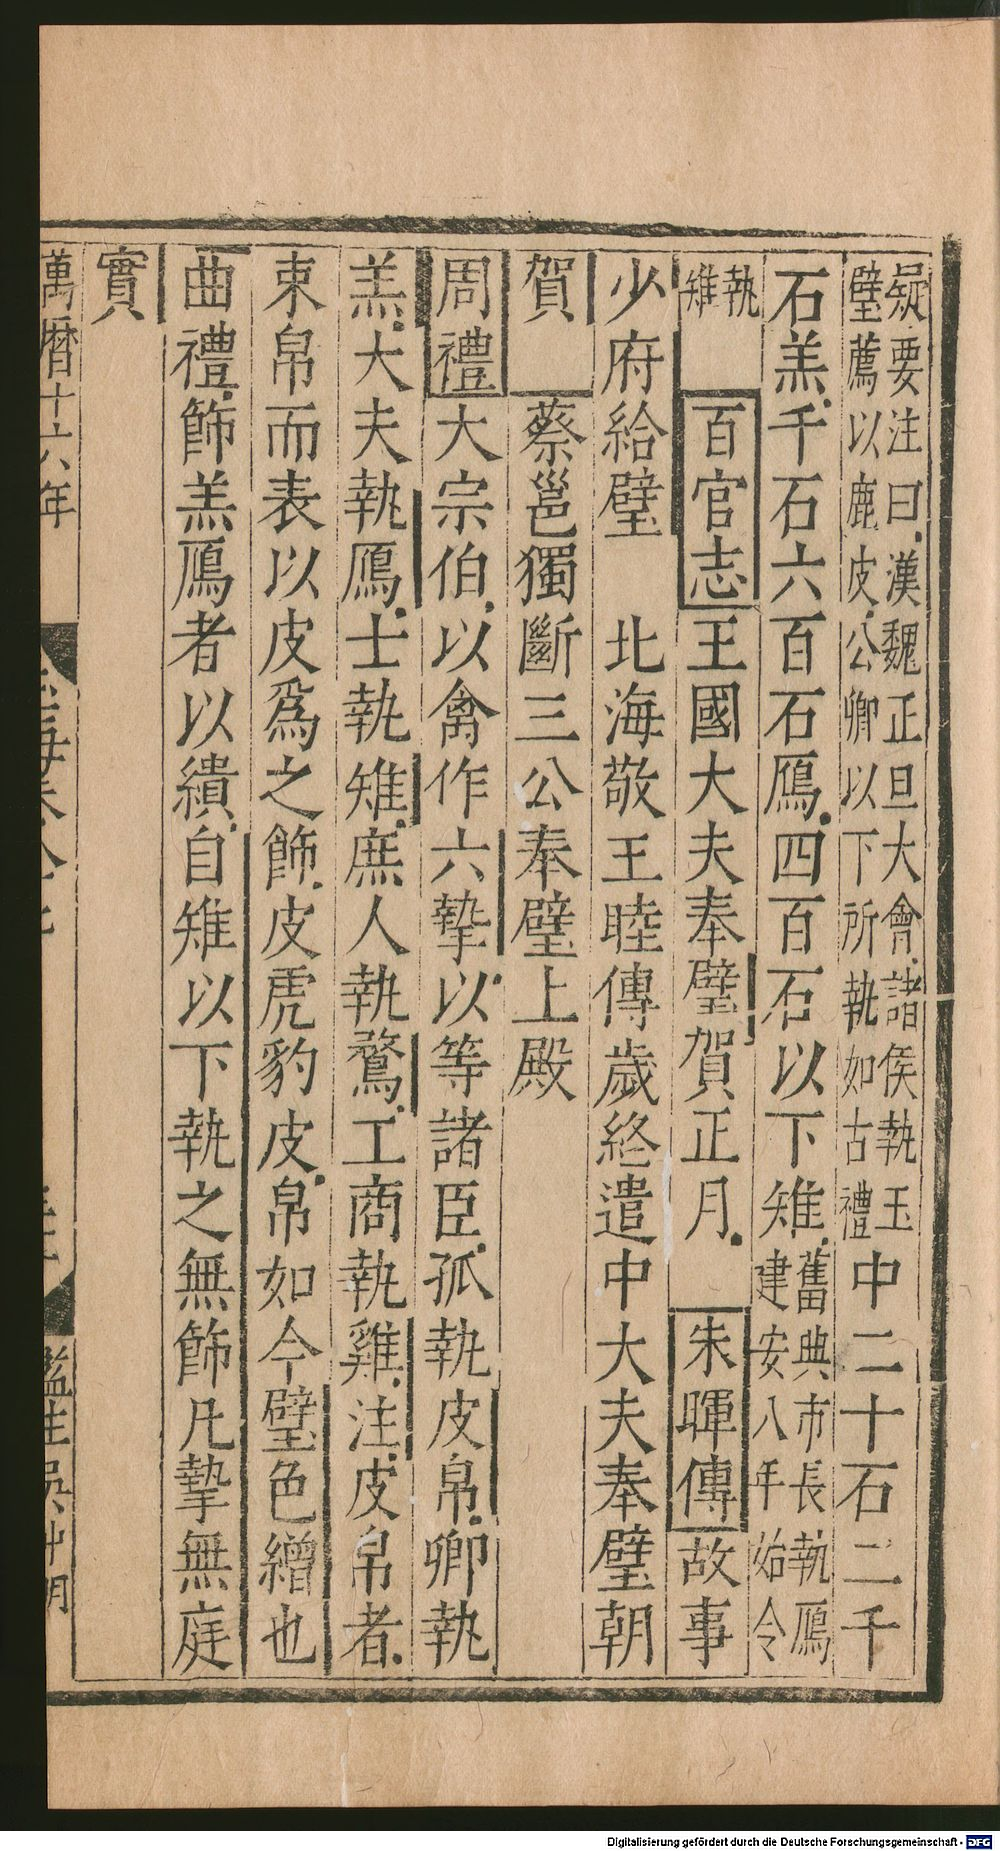 疑要注曰漢魏正旦大會諸侯執玉
璧薦以鹿皮公卿以下所執如古禮
中二十石二千
石羔千石六百石鴈四百石以下雉
舊典市長執鴈
建安八年始令
執
雉
百官志王國大夫奉璧賀正月 朱暉傳故事
少府給璧 北海敬王睦傳歲終遣中大夫奉璧朝
賀 蔡邕獨斷三公奉璧上殿
周禮大宗伯以禽作六摯以等諸臣孤執皮帛卿執
羔大夫執鴈士執雉庶人執鶩工商執雞注皮帛者
束帛而表以皮爲之飾皮虎豹皮帛如今璧色繒也
曲禮飾羔鴈者以繢自雉以下執之無飾凡摯無庭
實
萬曆十六年
監生吳仲明
Digitalisierung gefördert durch die Deutsche Forschungsgemeinschaft - DFG